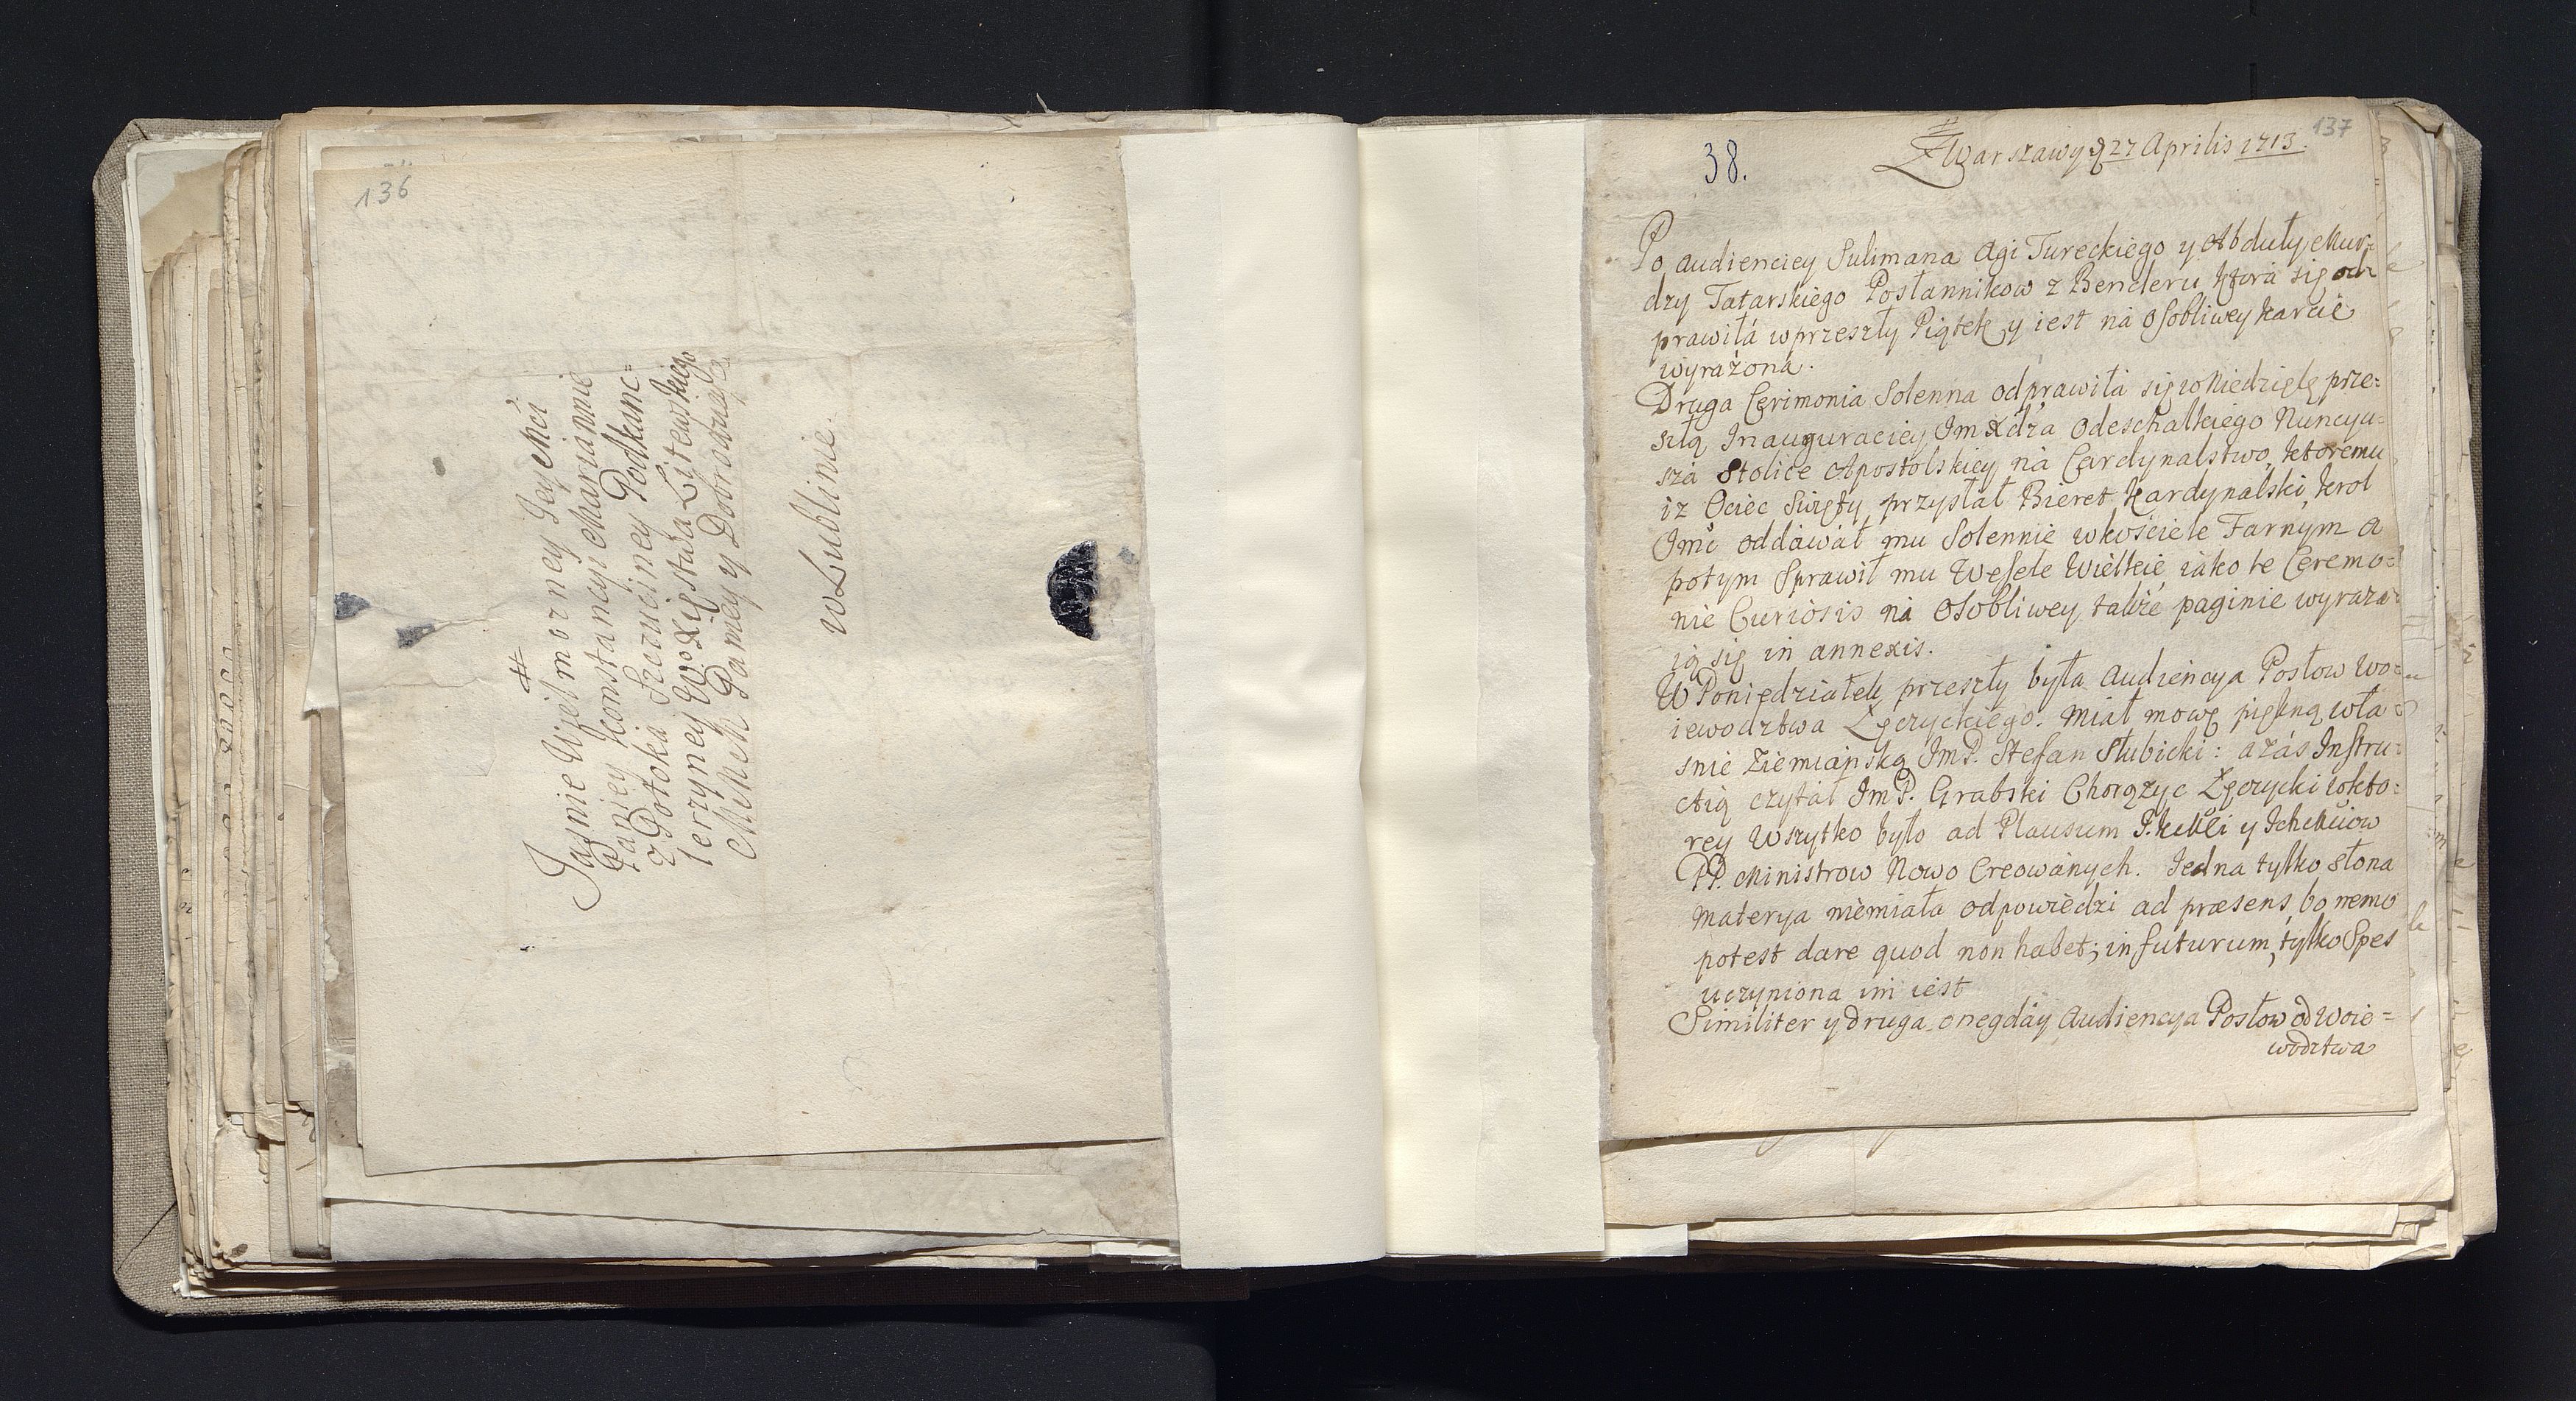 136
#
Jasnie Wielmozney Jey Mci
Paniey Konstancyi Mariannie
z Potoka Szczuciney Podkanc=
lerzyney W. X. Xięstwa Litewskiego
MMM Paniey y Dobrodziejce
w Lublinie.
137
38.
Z Warszawy d 27 Aprilis 1713.
Po audienciey Sulimana Agi Tureckiego y Abduły Mur=
dzy Tatarskiego Posłannikow z Benderu ktorá się od
prawiłá wprzeszły Piątek y iest ná osobliwey karcie
wyrażona.
Druga Cerimonia Solenna odprawiłá się w Niedzielę prze=
szłą Inauguraciey Im Xdza Odeschalkiego Nuncyu=
szá Stolice Apostolskiey ná Cardynalstwo, ktoremu
iz Ociec Swięty przysłał Bieret Kardynalski, Krol
Imć oddawał mu Solennie w kosciele Farnym a
potym Sprawił mu Wesele Wielkie iáko te Ceremo=
nie Curiosis ná Osobliwey tákże paginie wyraża=
ią się in annexis.
W Poniedziałek przeszły była Audiencya Posłow Wo=
iewodztwa Łęczyckiego. Miał mowę piękną wła=
snie Ziemiańską ImP. Stefan Słubicki: a zás Instru=
ctią czytał ImP. Grabski Chorązyc Łęczycki w kto=
rey Wszytko było ad Plausum P. Krolei y Ichmciow
PP. Ministrow Nowo Creowánych. Jedna tylko słona
materya niemiała odpowiedzi ad præsens, bo nemo
potest dare quod non habet; in futurum, tylko Spes
uczyniona im iest
Similiter y druga onegdáy Audiencya Posłow od Woie=
wodztwa